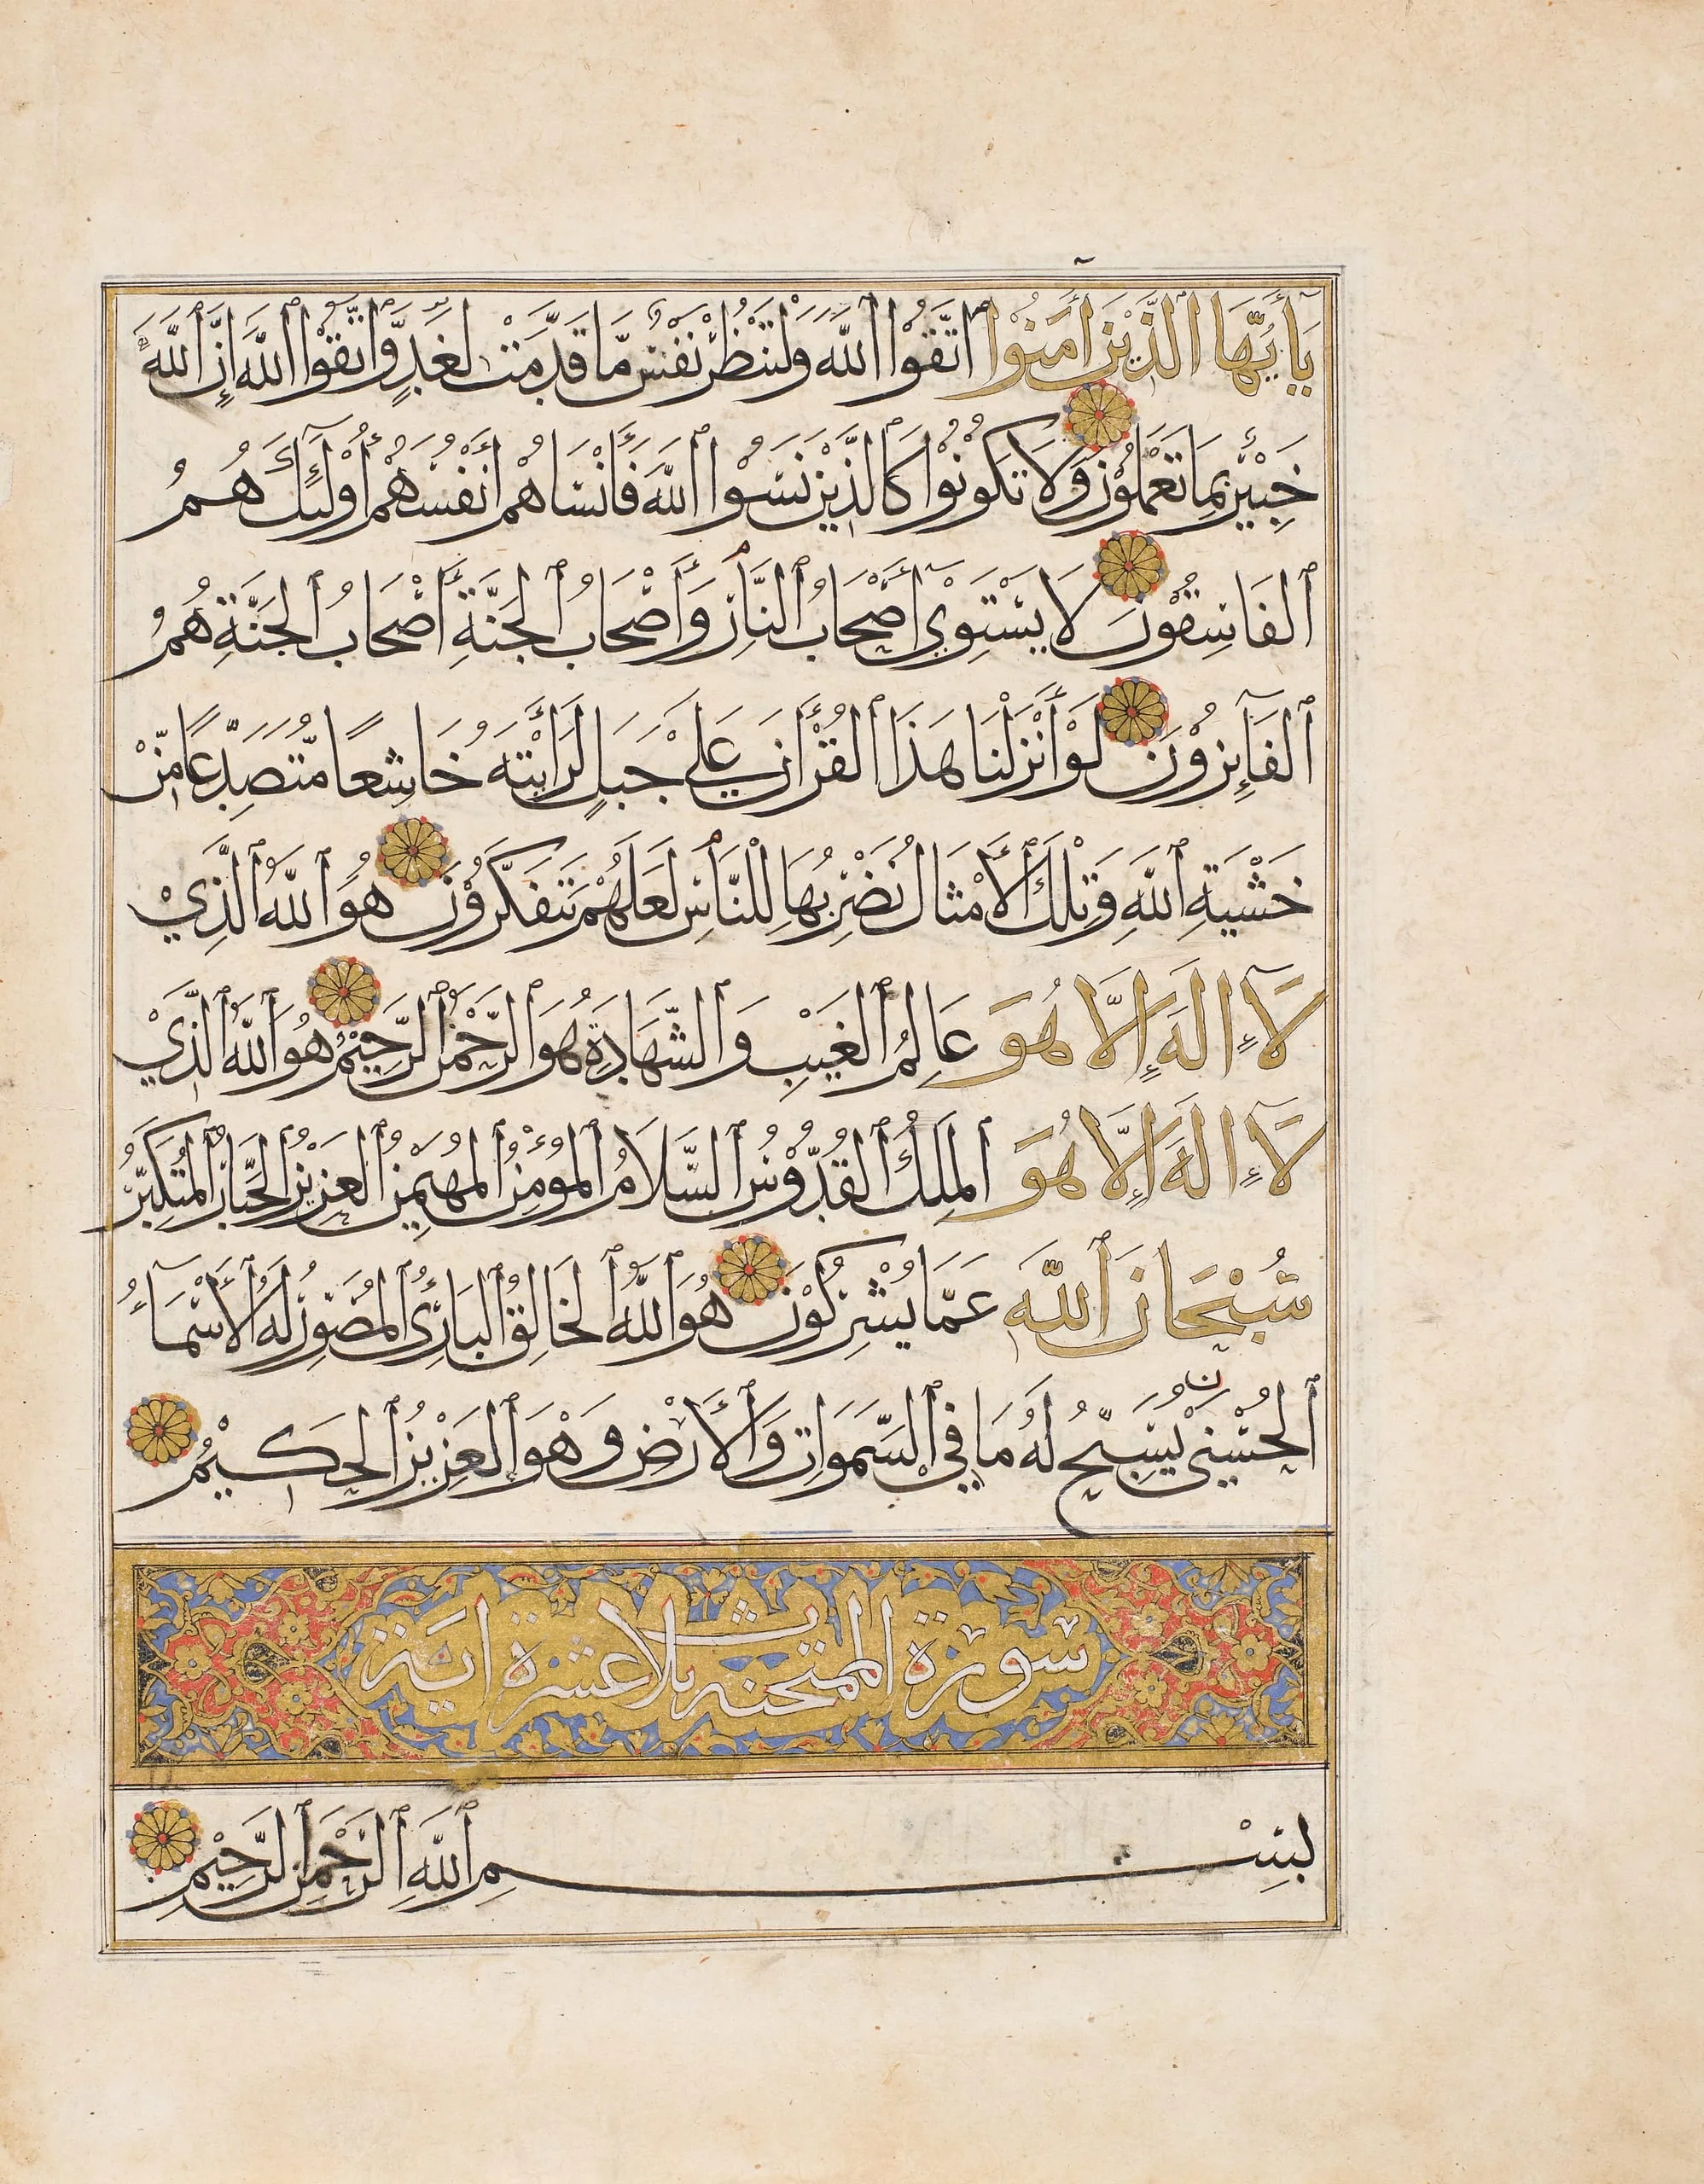 يَا أَيُّهَا الَّذِيْنَ اٰمَنُوْا اتَّقُوْا اللّٰهَ وَلْتَنْظُرْ نَفْسٌ مَّا قَدَّمَتْ لِغَدٍ وَّاتَّقُوْا اللّٰهَ اِنَّ اللّٰهَ
خَبِيْرٌ بِمَا تَعْمَلُوْنَ وَلَا تَكُوْنُوْا كَالَّذِيْنَ نَسُوْا اللّٰهَ فَأَنْسَاهُمْ أَنْفُسَهُمْ أُوْلٰئِكَ هُمُ
الفَاسِقُوْنَ لَا يَسْتَوِيْ أَصْحَابُ النَّارِ وَأَصْحَابُ الجَنَّةِ أَصْحَابُ الجَنَّةِ هُمُ
الفَآئِزُوْنَ لَوْ أَنْزَلْنَا هَذَا القُرْأَانَ عَلَى جَبَلٍ لَرَأَيْتَهُ خَاشِعًا مُّتَصَدِّعًا مِّنْ
خَشْيَةِ اللّٰهِ وَتِلْكَ الأَمْثَالُ نَضْرِبُهَا لِلنَّاسِ لَعَلَّهُمْ يَتَفَكَّرُوْنَ هُوَ اللّٰهُ الَّذِيْ
لَآ إِلٰهَ إِلَّا هُوَ عَالِمُ الغَيْبِ وَالشَّهَادَةِ هُوَ الرَّحْمٰنُ الرَّحِيْمُ هُوَ اللّٰهُ الَّذِيْ
لَآ إِلٰهَ إِلَّا هُوَ المَلِكُ القُدُّوْسُ السَّلَامُ المُؤْمِنُ المُهَيْمِنُ العَزِيْزُ الجَبَّارُ المُتَكَبِّرُ
سُبْحَانَ اللّٰهِ عَمَّا يُشْرِكُوْنَ هُوَ اللّٰهُ الخَالِقُ البَارِئُ المُصَوِّرُ لَهُ الأَسْمَآءُ
الحُسْنىٰ يُسَبِّحُ لَهُ مَا فِي السَّمَوَاتِ وَالأَرْضِ وَهْوَ العَزِيْزُ الحَكِيْمُ
سورة الممتحنه ثلاث عشرة اية
بِسْمِ اللّٰهِ الرَّحْمٰنِ الرَّحِيْمِ